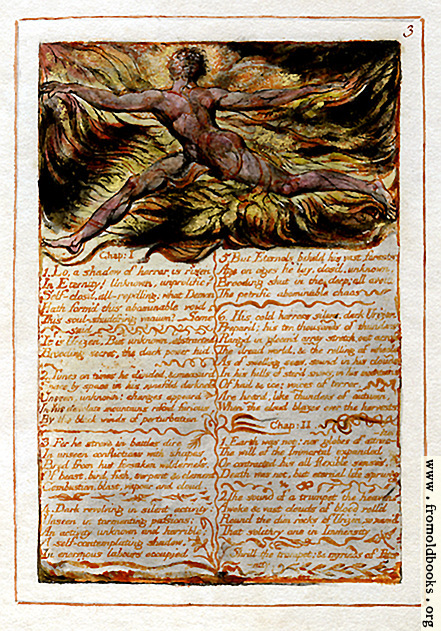 3
Chap: I
1. Lo, a shadow of horror is risen
In Eternity! Unknown, unprolific!
Self-closd, all-repelling; what Demon
Hath form'd this abominable void
This soul-shudd'ring vacuum? Some said
It is Urizen, But unknown, abstracted
Brooding secret, the dark power hid.
2. Times on times he divided, & measur'd
Space by space in his ninefold darkness
Unseen, unknown! changes appeard
In his desolate mountains rifted furious
By the black winds of perturbation
3. For he strove in battles dire
In unseen conflictions with shapes
Bred from his forsaken wilderness,
Of beast, bird, fish, serpent & element
Combustion, blast, vapour and cloud.
4. Dark revolving in silent activity:
Unseen in tormenting passions;
An activity unknown and horrible;
A self-contemplating shadow,
In enormous labours occupied
5. But Eternals beheld his vast forests
Age on ages he lay, clos'd, unknown,
Brooding shut in the deep; all avoid
The petrific abominable chaos
6. His cold horrors silent, dark Urizen
Prepar'd; his ten thousands of thunders
Rang'd in gloom'd array stretch out across
The dread world, & the rolling of wheels
As of swelling seas, sound in his clouds
In his hills of stor'd snows, in his mountains
Of hail & ice; voices of terror,
Are heard, like thunders of autumn,
When the cloud blazes over the harvests
Chap: II
1. Earth was not: nor globes of attraction
The will of the Immortal expanded
Or contracted his all flexible senses.
Death was not, but eternal life sprung
2. The sound of a trumpet the heavens
Awoke & vast clouds of blood roll'd
Round the dim rocks of Urizen, so nam'd
That solitary one in Immensity
Shrill the trumpet: & myriads of Eternity
www.fromoldbooks.org